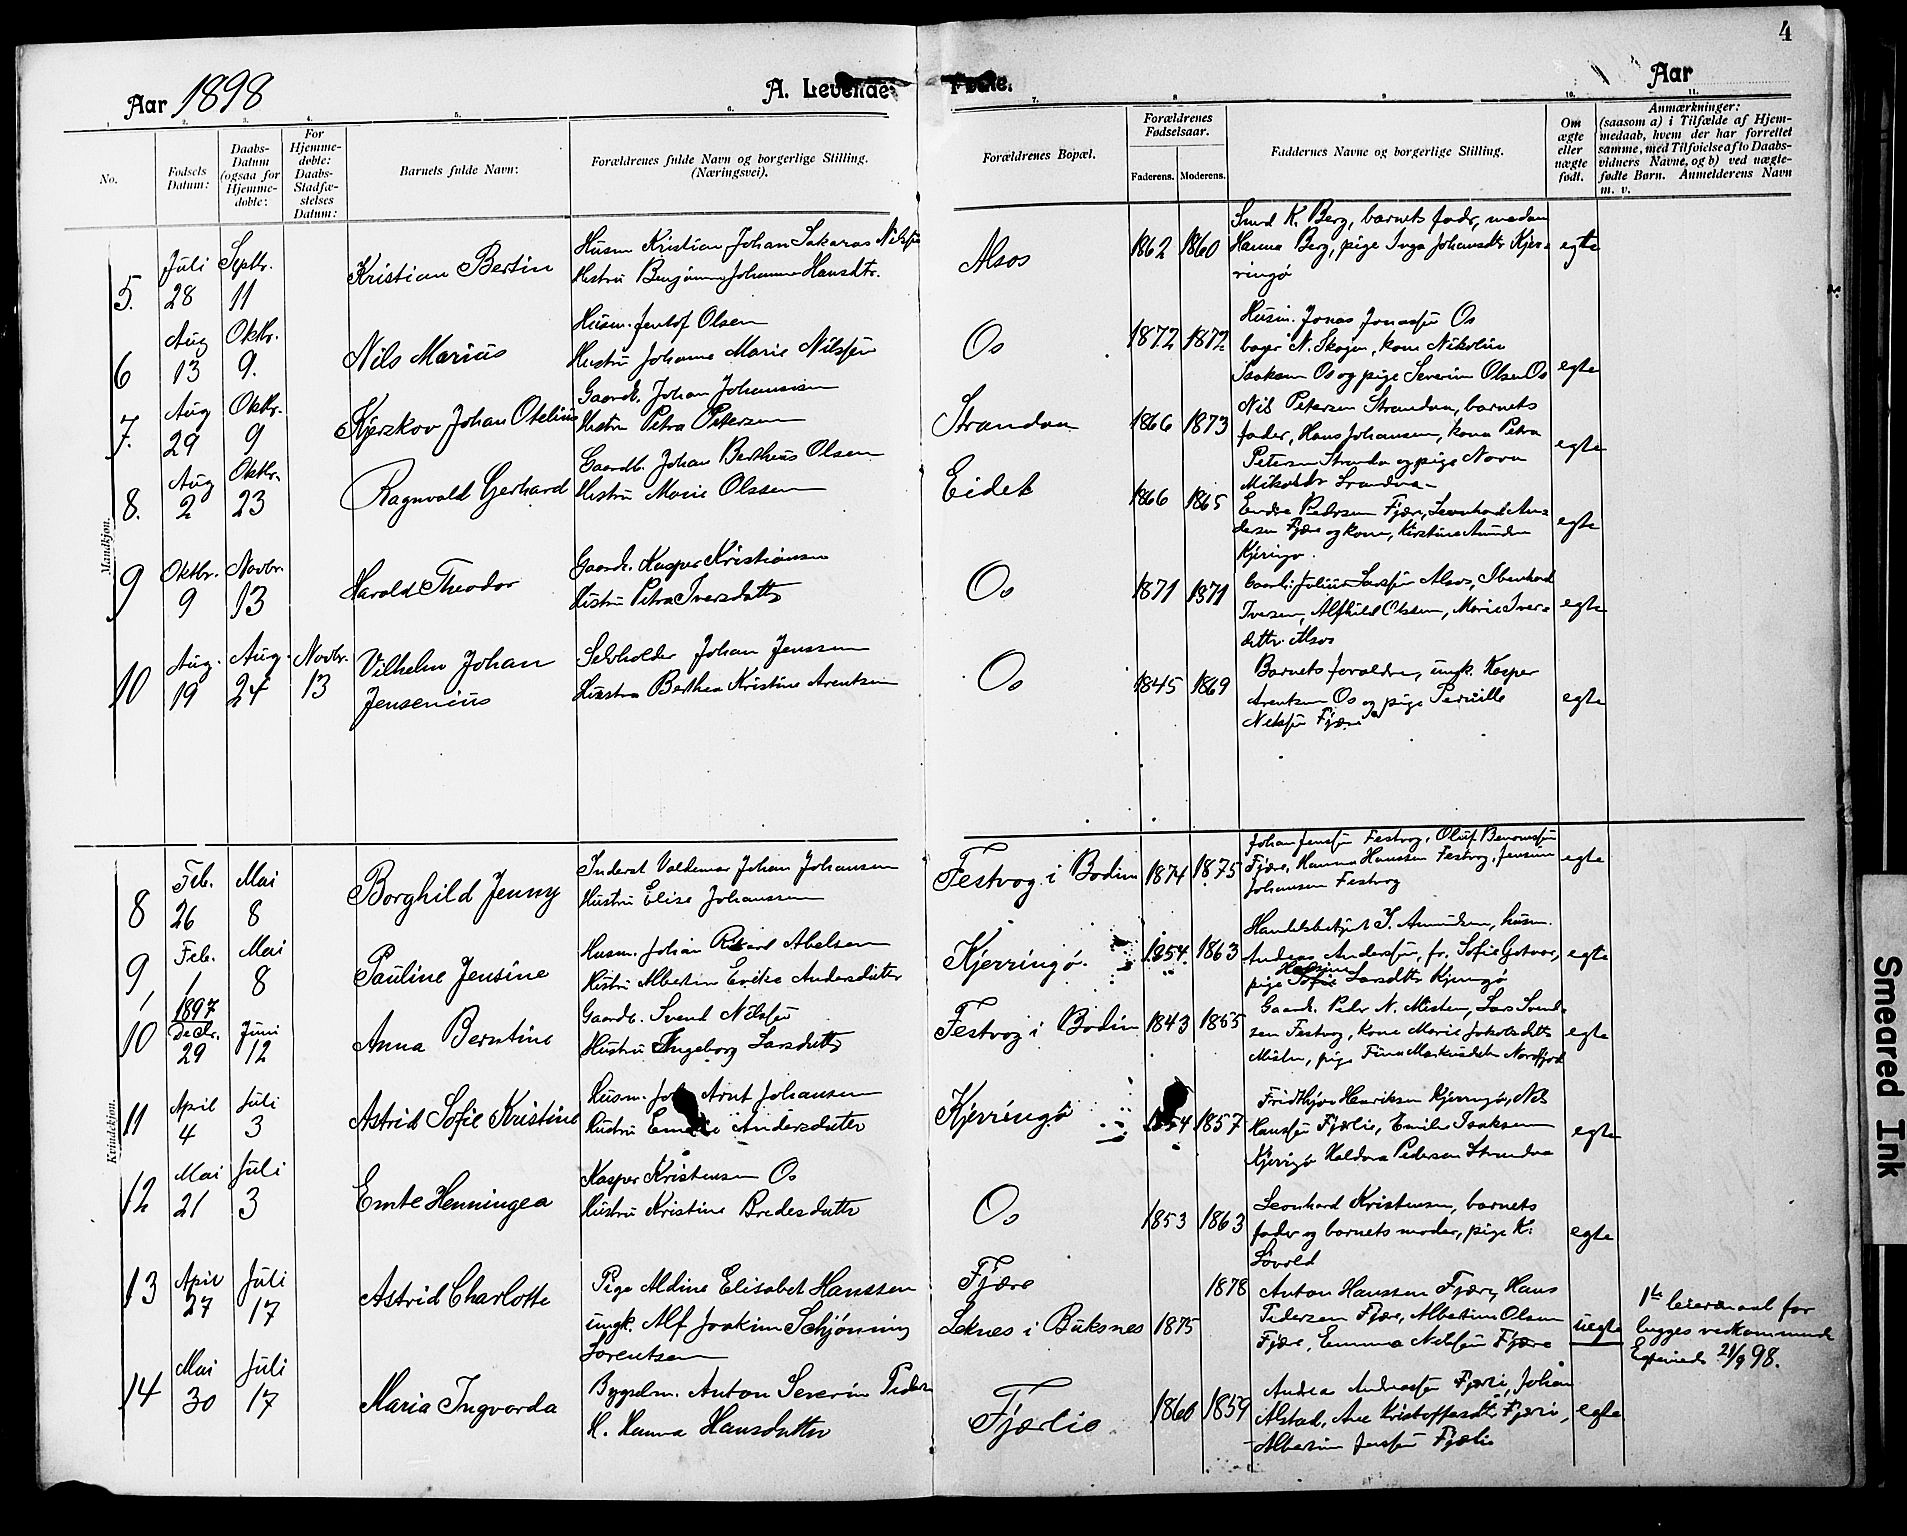 4
Aar 1898
A. Levende Fødte.
Aar
No.
Fødsels Datum:
Daabs-Datum (ogsaa for Hjemmedøbte:
For Hjemmedøbte: Daabs-Stadfæstelses Datum:
Barnets fulde Navn:
Forældrenes fulde Navn og borgerlige Stilling. (Næringsvei).
Forældrenes Bopæl.
Forældrenes Fødselsaar.
Faderens. Moderens.
Faddernes Navne og borgerlige Stilling.
Om ægte eller uægte født.
Anmærkninger:
(saasom a) i Tilfælde af Hjemmedaab, hvem der har forrettet samme, med Tilføielse af to Daabsvidners Navne, og b) ved uægtefødte Børn. Anmelderens Navn m. v.
Mandkjøn.
5. Juli 28 Septbr. 11 Kristian Bertin
Husm Kristian Johan Sakarias Nilsen
Hustru Johanna Hansdtr.
Alsos 1862 1860
K. Berg, barnets fader, madam
Hanna Berg, pige Inga Johansdtr Kjerringø
egte
6 Aug 13 Oktbr. 9. Nils Marius
Husm. Jentof Olsen
Hustru Johanna Marie Nilssen
Os 1872 1872
Husm. Jonas Jonassen Os
N. Skagen, kone Nikoline
Isaksen Os og pige Severine Olsen Os
egte
7. Aug 29 Oktbr. 9 Kjerskov Johan Otelius
Gaardb. Johan Johansen
Hustru Petra Petersen
Strandaa 1866 1873
Nils Petersen Strandaa, barnets
fader, Hans Johansen, kona Petra
Petersen Stranda og pige Nora
egte
8. Aug 2 Oktbr. 23 Ragnvald Gerhard
Gaardb. Johan Bertheus Olsen
Hustru Marie Olssen
Eidet 1866 1865
Endre Pedersen Fjære, Leonhard Andersen Fjære og kone, Kirstine Amundsen
Kjeringø.
egte
9 Oktbr. 9 Novbr. 13 Harald Theodor
Gaardb. Kasper Kristiansen
Hustru Petra Iversdatter
Os 1871 1871
Gaardb. Julius Larssen Alsos,
Iversen, Alfhild Olssen, Marie Iversdattr. Alsos
egte
10 Aug. 19 Aug. 24 Novbr. 13 Vilhelm Johan
Jensenius
Selvholder Johan Jenssen
Hustru Berthea Kristine Arentsen
Os 1845 1869
Barnets forældre, ungk. Kasper
Arentsen Os og pige Pernille
Nilssen Fjære
egte
Kvindekjøn.
8 Feb. 26 Mai 8 Borghild Jenny
Inderst Valdemar Johan Johansen
Hustru Elise Johanssen
Festvog i Bodin 1874 1875
Johan Jenssen Festvog, Oluf
Fjære, Hanna Hanssen Festvog, Jensine
Johansen Festvog
egte
9, Feb. 1 Mai 8 Pauline Jensine
Husm. Johan Rikard Abelsen
Hustru Albertine Emilie Andersdatter
Kjerringø. 1854 1863
Handelsbetjent S. Amundsen, husm.
Andreas Anderssen, fr. Sofie
pige Hansine Larsdtr Kjerringø
egte
10 1897 Decbr. 29 Juni 12 Anna Berntine
Gaardb. Svend Nilssen
Hustru Ingeborg Larsdatter
Festvog i Bodin 1843 1855
Gaardb. Peder N. Misten, Lars Svendsen Festvog, kone Marie Jakobsdatter
Misten, pige Fina Markusdatter Nordfjord
egte
11 April 4 Juli 3 Astrid Sofie Kristine
Husm. Arnt Johansen
Hustru Emelie Andersdatter
Kjerringø 1854 1857
Fridthjov Henriksen Kjerringø, Nils
Hanssen Fjærlie, Emilie Isaksen
Kjerringø Haldora Pedersen Strandaa
egte
12 Mai 21 Juli 3 Emte Henningea
Kasper Kristensen Os
Hustru Kristine Bredesdatter
Os 1853 1863
Leonhard Kristensen, barnets
fader og barnets moder, pige K.
Løvold
egte
13 April 27 Juli 17 Astrid Charlotte
Pige Aldine Elisabet Hanssen
ungk. Alf Joakim Schjønning
Lorentsen
Fjære 1878
Leknes i Buksnes 1875
Anton Hanssen Fjære, Hans
Pedersen Fjære, Albertine Olsen
Fjære, Emma Nilssen Fjære
uegte
1ste leiermaal for
begges vedkommende
21/9 98.
14 Mai 30 Juli 17 Maria Ingvarda
Bygselm. Anton Severin Peders
H. Hanna Hansdatter
Fjærlie 1860 1859
Andrea Andreassen Fjære, Johan
Alstad, Ane Kristoffersdtr Fjære,
Albertine Jenssen Fjærlie
egte
Smeared Ink